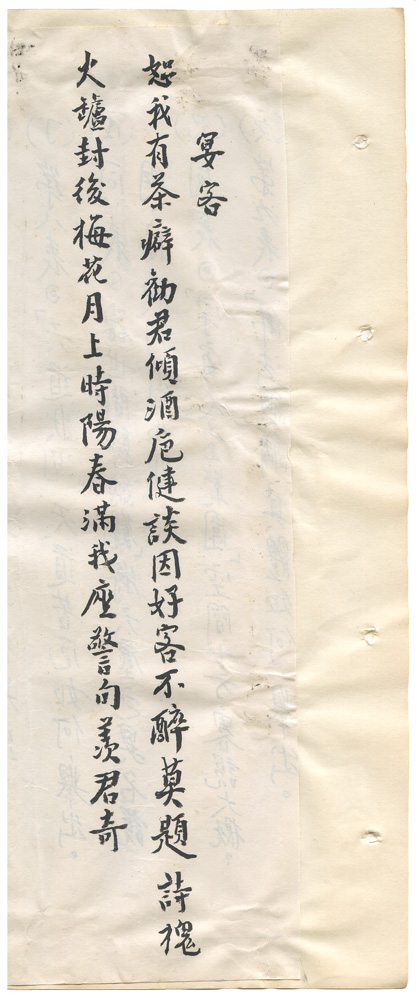 宴客
恕我有茶癖勸君傾酒卮健談因好客不醉莫題詩槐
火罏封後梅花月上時陽春滿我座警句羨君奇